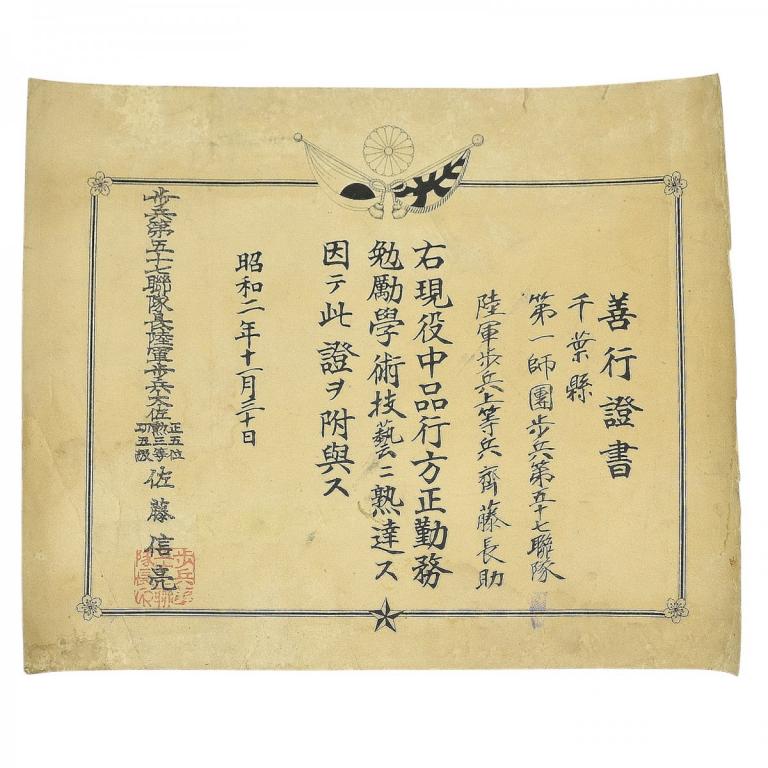 善行證書
千葉縣
第一師團步兵第五十七聯隊
陸軍步兵上等兵齊藤長助
右現役中品行方正勤務
勉勵學術技藝ニ熟達ス
因テ此證ヲ附與ス
昭和二年十一月三十日
步兵第五十七聯隊長陸軍步兵大佐
正五位
勲三等
功五級
佐藤信亮